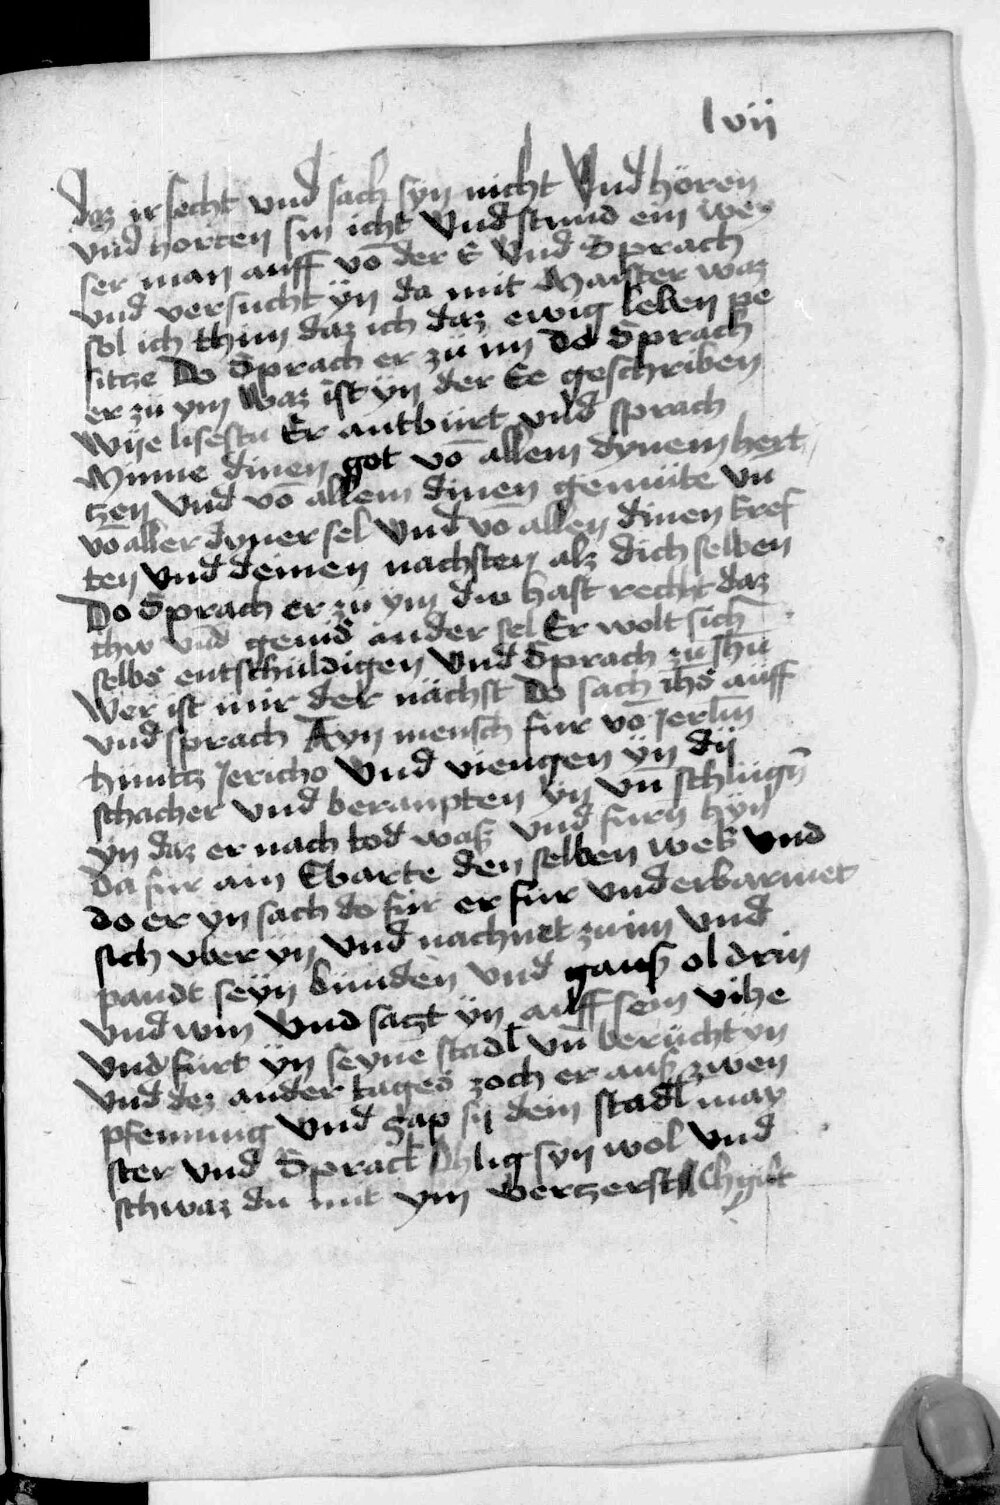 lvij
daz ir secht vnd sach syn nicht Vnd hören
vnd horten sin icht Vnd stund ein wey
ser man auff vō der E Vnd Sprach
vnd versucht ÿn da mit Maister waz
sol ich thun daz ich daz ewig leben pe
sitze Do Sprach er zü im Do Sprach
er zü ym Waz ist ÿn der Ee geschriben
wÿe lisestu Er antbürt vnd sprach
Minne dinen got vō allem dynem hert
zen Vnd vō allem dinen gemüte Vn
vō aller dyner sel Vnd vō allen dinen kref
ten Vnd deinen nachsten alz dich selben
Do Sprach er zü ym dw hast recht daz
thw vnd genid ander sel Er wolt sich
selbs entschuldigen Vnd Sprach zü jhū
Wer ist mir der nächst Do sach ihs auff
vnd sprach Ayn mensch für vō Jerlm
hüntz Jericho Vnd viengen ÿn dij
schacher Vnd beraupten ÿn vn̄ schlügn̄
ÿn daz er nach tod waß Vnd furn̄ hÿn
Da für ain Ewarte den selben wek Vnd
do er yn sach do für er für Vnd erbarmet
sich vber yn Vnd nachnet zu im Vnd
pandt seyn bünden Vnd gauß ol drin
Vnd win Vnd satzt ÿn auff sein vihe
Vnd fürt ÿn seyne stadl vn̄ berücht ÿn
Vnd dez ander tages zoch er auß zwen
pfenning Vnd gap sÿ dem stadl may
ster Vnd Sprach Phlig syn wol Vnd
schwaz du mit ym verzerst Ich gibt